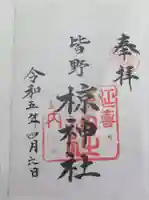 奉拝
皆野
椋神社
令和五年四月六日